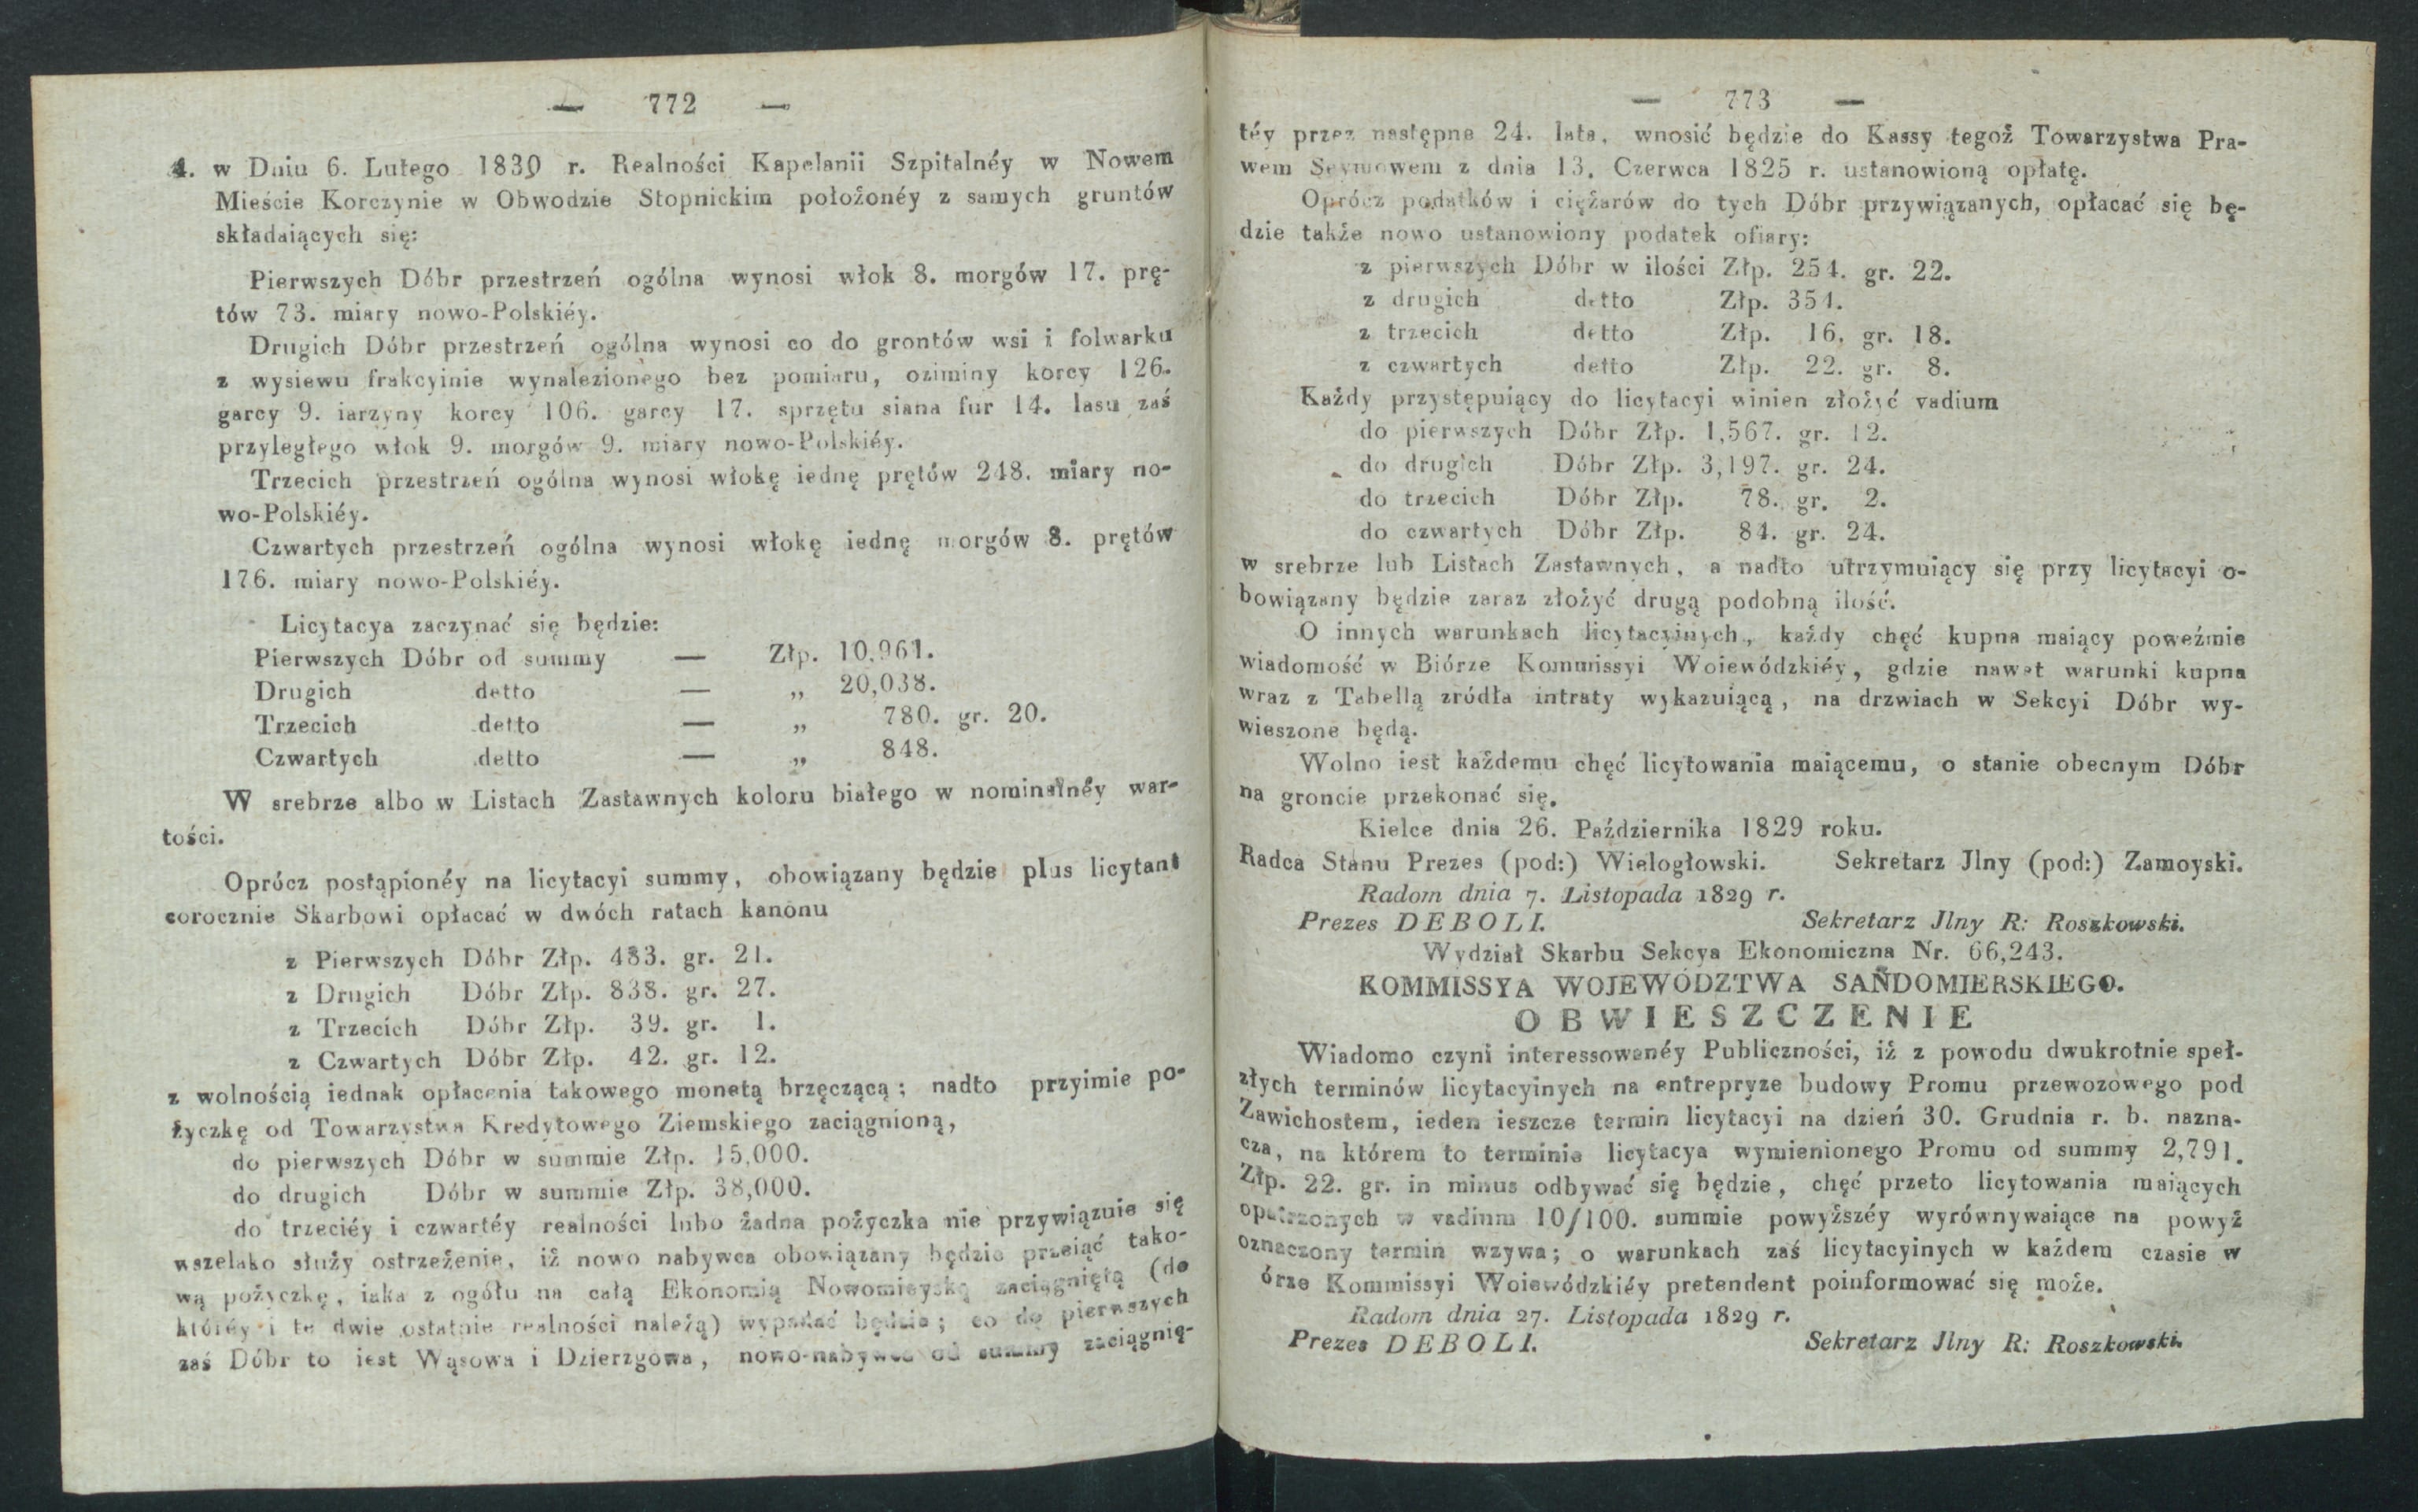 — 772 —
4. w Dniu 6. Lutego 1830 r. Realności Kapelanii Szpitalnéy w Nowem
Mieście Korczynie w Obwodzie Stopnickim położonéy z samych gruntów
składaiących się:
Pierwszych Dóbr przestrzeń ogólna wynosi włok 8. morgów 17. prę-
tów 73. miary nowo-Polskiéy.
Drugich Dóbr przestrzeń ogólna wynosi co do grontów wsi i folwarku
z wysiewu frakcyinie wynalezionego bez pomiaru, oziminy korcy 126.
garcy 9. iarzyny korcy 106. garcy 17. sprzętu siana fur 14. lasu zaś
przyległego włok 9. morgów 9. miary nowo-Polskiéy.
Trzecich przestrzeń ogólna wynosi włokę iednę prętów 248. miary no-
wo-Polskiéy.
Czwartych przestrzeń ogólna wynosi włokę iednę morgów 8. prętów
176. miary nowo-Polskiéy.
Licytacya zaczynać się będzie:
Pierwszych Dóbr od summy — Złp. 10,961.
Drugich detto — „ 20,038.
Trzecich detto — „ 780. gr. 20.
Czwartych detto — „ 848.
W srebrze albo w Listach Zastawnych koloru białego w nominalnéy war-
tości.
Oprócz postąpionéy na licytacyi summy, obowiązany będzie plus licytant
corocznie Skarbowi opłacać w dwóch ratach kanonu
z Pierwszych Dóbr Złp. 483. gr. 21.
z Drugich Dóbr Złp. 838. gr. 27.
z Trzecich Dóbr Złp. 39. gr. 1.
z Czwartych Dóbr Złp. 42. gr. 12.
z wolnością iednak opłacenia takowego monetą brzęczącą; nadto przyimie po-
życzkę od Towarzystwa Kredytowego Ziemskiego zaciągnioną,
do pierwszych Dóbr w summie Złp. 15,000.
do drugich Dóbr w summie Złp. 38,000.
do trzeciéy i czwartéy realności lubo żadna pożyczka nie przywiązuie się
wszelako służy ostrzeżenie, iż nowo nabywca obowiązany będzie przeiąć tako-
wą pożyczkę, iaka z ogółu na całą Ekonomią Nowomieyską zaciągniętą (do
któréy i te dwie ostatnie realności należą) wypadać będzie; co do pierwszych
zaś Dóbr to iest Wąsowa i Dzierzgowa, nowo-nabywca od summy zaciągnię-
— 773 —
téy przez następne 24. lata, wnosić będzie do Kassy tegoż Towarzystwa Pra-
wem Seymowem z dnia 13. Czerwca 1825 r. ustanowioną opłatę.
Oprócz podatków i ciężarów do tych Dóbr przywiązanych, opłacać się bę-
dzie także nowo ustanowiony podatek ofiary:
z pierwszych Dóbr w ilości Złp. 254. gr. 22.
z drugich detto Złp. 354.
z trzecich detto Złp. 16. gr. 18.
z czwartych detto Złp. 22. gr. 8.
Każdy przystępuiący do licytacyi winien złożyć vadium
do pierwszych Dóbr Złp. 1,567. gr. 12.
do drugich Dóbr Złp. 3,197. gr. 24.
do trzecich Dóbr Złp. 78. gr. 2.
do czwartych Dóbr Złp. 84. gr. 24.
w srebrze lub Listach Zastawnych, a nadto utrzymuiący się przy licytacyi o-
bowiązany będzie zaraz złożyć drugą podobną ilość.
O innych warunkach licytacyinych, każdy chęć kupna maiący poweźmie
wiadomość w Biórze Kommissyi Woiewódzkiéy, gdzie nawet warunki kupna
wraz z Tabellą zródła intraty wykazuiącą, na drzwiach w Sekcyi Dóbr wy-
wieszone będą.
Wolno iest każdemu chęć licytowania maiącemu, o stanie obecnym Dóbr
na groncie przekonać się.
Kielce dnia 26. Października 1829 roku.
Radca Stanu Prezes (pod:) Wielogłowski. Sekretarz Jlny (pod:) Zamoyski.
Radom dnia 7. Listopada 1829 r.
Prezes DEBOLI. Sekretarz Jlny R: Roszkowski.
Wydział Skarbu Sekcya Ekonomiczna Nr. 66,243.
KOMMISSYA WOJEWÓDZTWA SANDOMIERSKIEGO.
OBWIESZCZENIE
Wiadomo czyni interessowanéy Publiczności, iż z powodu dwukrotnie speł-
złych terminów licytacyinych na entrepryze budowy Promu przewozowego pod
Zawichostem, ieden ieszcze termin licytacyi na dzień 30. Grudnia r. b. nazna-
cza, na którem to terminie licytacya wymienionego Promu od summy 2,791.
Złp. 22. gr. in minus odbywać się będzie, chęć przeto licytowania maiących
opatrzonych w vadium 10/100. summie powyższéy wyrównywaiące na powyż
oznaczony termin wzywa; o warunkach zaś licytacyinych w każdem czasie w
órze Kommissyi Woiewódzkiéy pretendent poinformować się może.
Radom dnia 27. Listopada 1829 r.
Prezes DEBOLI. Sekretarz Jlny R: Roszkowski.